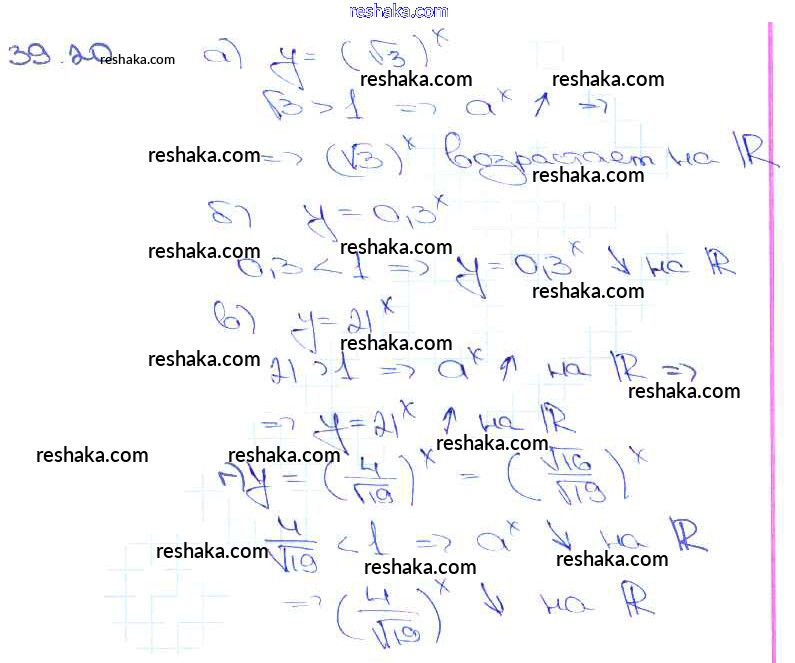 reshaka.com
39.20 reshaka.com а) y = (√3)^x
reshaka.com reshaka.com
√3 > 1 => a^x ↑ =>
reshaka.com => (√3)^x возрастает на ℝ
reshaka.com
б) y = 0,3^x
reshaka.com reshaka.com
0,3 < 1 => y = 0,3^x ↓ на ℝ
reshaka.com
в) y = 21^x
reshaka.com reshaka.com
21 > 1 => a^x ↑ на ℝ =>
reshaka.com
=> y = 21^x ↑ на ℝ
reshaka.com reshaka.com reshaka.com
г) y = (4/√19)^x = (√16/√19)^x
4/√19 < 1 => a^x ↓ на ℝ
reshaka.com reshaka.com reshaka.com
=> (4/√19)^x ↓ на ℝ